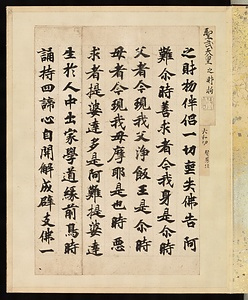 聖武天皇 之財物
之財物伴侶一切無失佛告阿
難尒時善求者今我身是尒時
父者今現我父淨飯王是尒時
母者今現我母摩耶是也時惡
求者提婆達多是阿難提婆達
生於人中出家學道緣前鳥時
誦持四諦心自開解成辟支佛一